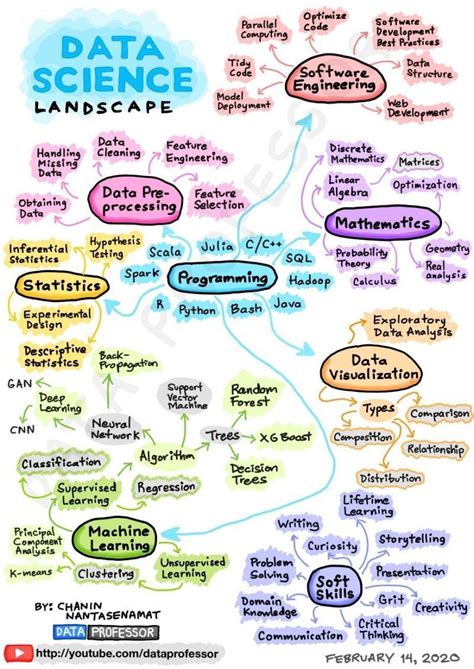 DATA
SCIENCE
LANDSCAPE
Parallel
Computing
Optimize
Code
Software
Development
Best Practices
Tidy
Code
Software
Engineering
Data
Structure
Model
Deployment
Web
Development
Handling
Missing
Data
Data
Cleaning
Feature
Engineering
Obtaining
Data
Data Pre-
processing
Feature
Selection
Discrete
Mathematics
Matrices
Linear
Algebra
Optimization
Mathematics
Probability
Theory
Geometry
Real
analysis
Calculus
Inferential
Statistics
Hypothesis
Testing
Statistics
Experimental
Design
Descriptive
Statistics
Scala
Julia
C/C++
SQL
Spark
Programming
Hadoop
R
Python
Bash
Java
Exploratory
Data Analysis
Data
Visualization
Types
Comparison
Composition
Relationship
Distribution
Back-
Propagation
GAN
Deep
Learning
CNN
Neural
Network
Support
Vector
Machine
Random
Forest
Algorithm
Trees
XG Boost
Decision
Trees
Classification
Supervised
Learning
Regression
Principal
Component
Analysis
Machine
Learning
K-means
Clustering
Unsupervised
Learning
Lifetime
Learning
Writing
Storytelling
Curiosity
Problem
Solving
Presentation
Soft
Skills
Domain
Knowledge
Grit
Creativity
Communication
Critical
Thinking
BY: CHANIN
NANTASENAMAT
DATA PROFESSOR
http://youtube.com/dataprofessor
FEBRUARY 14, 2020
DATA PROFESSOR